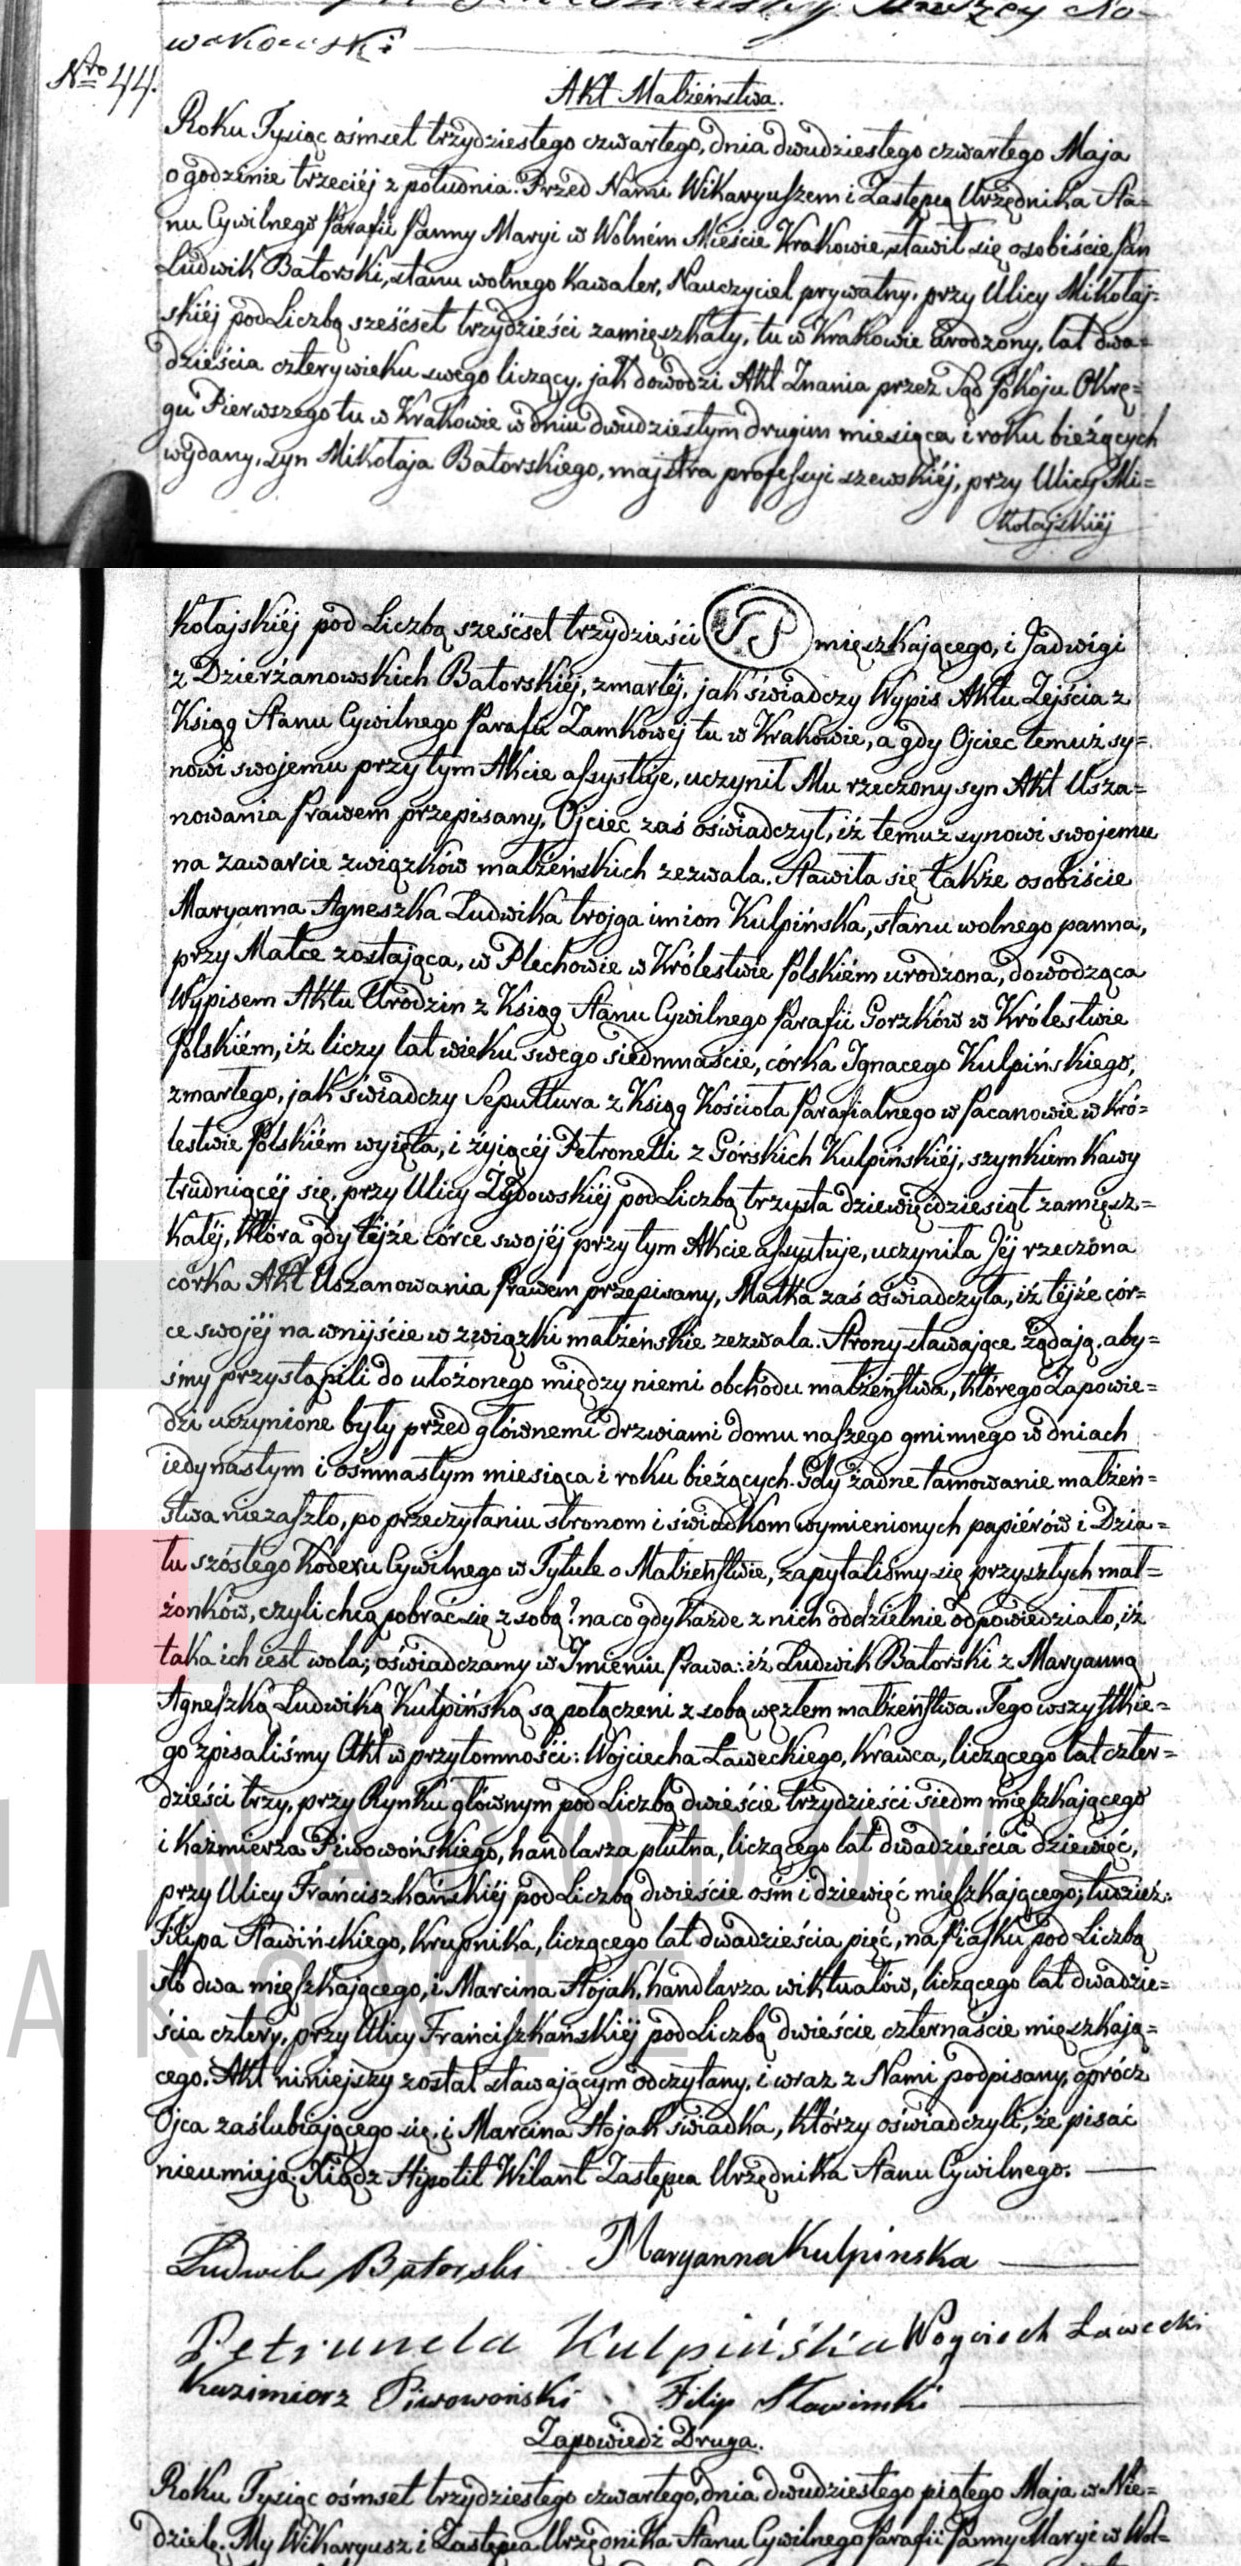 wakowski
Nro 44.
Akt Małżeństwa.
Roku Tysiąc ośmset trzydziestego czwartego, dnia dwudziestego czwartego Maja
o godzinie trzeciéj z południa. Przed Nami Wikaryuszem i Zastępcą Urzędnika Sta=
nu Cywilnego Parafii Panny Maryi w Wolném Mieście Krakowie, stawił się osobiście Pan
Ludwik Batorski, stanu wolnego kawaler, Nauczyciel prywatny, przy Ulicy Mikołaj=
skiéj pod Liczbą sześćset trzydzieści zamięszkały, tu w Krakowie urodzony, lat dwa=
dzieścia cztery wieku swego liczący, jak dowodzi Akt Znania przez Sąd Pokoju Okrę=
gu Pierwszego tu w Krakowie w dniu dwudziestym drugim miesiąca i roku bieżących
wydany, syn Mikołaja Batorskiego, majstra professyi szewskiéj, przy Ulicy Mi=
kołajskiéj
kołajskiéj pod Liczbą sześćset trzydzieści mięszkającego, i Jadwigi
z Dzierżanowskich Batorskiéj, zmarłéj, jak świadczy Wypis Aktu Zejścia z
Ksiąg Stanu Cywilnego Parafii Zamkowéj tu w Krakowie, a gdy Ojciec temuż sy=
nowi swojemu przy tym Akcie assystuje, uczynił Mu rzeczony syn Akt Usza=
nowania Prawem przepisany, Ojciec zaś oświadczył, iż temuż synowi swojemu
na zawarcie związków małżeńskich zezwala. Stawiła się także osobiście
Maryanna Agneszka Ludwika trojga imion Kulpińska, stanu wolnego panna,
przy Matce zostająca, w Plechowie w Królestwie Polskiém urodzona, dowodząca
Wypisem Aktu Urodzin z Ksiąg Stanu Cywilnego Parafii Gorzków w Królestwie
Polskiém, iż liczy lat wieku swego siedmnaście, córka Ignacego Kulpińskiego,
zmarłego, jak świadczy Sepultura z Ksiąg Kościoła Parafialnego w Pacanowie w Kró=
lestwie Polskiém wyjęta, i żyiącéj Petronelli z Górskich Kulpińskiéj, szynkiem kawy
trudniącéj się, przy Ulicy Żydowskiéj pod Liczbą trzysta dziewięćdziesiąt zamięsz=
kałéj, która gdy téjże córce swojéj przy tym Akcie assystuje, uczyniła Jéj rzeczona
córka Akt Uszanowania Prawem przepisany, Matka zaś oświadczyła, iż téjże cór=
ce swojéj na wnijście w związki małżeńskie zezwala. Strony stawające żądają, aby=
śmy przystąpili do ułożonego między niemi obchodu małżeństwa, którego Zapowie=
dzi uczynione były przed głównemi drzwiami domu naszego gminnego w dniach
iedynastym i ośmnastym miesiąca i roku bieżących. Gdy żadne tamowanie małżeń=
stwa niezaszło, po przeczytaniu stronom i świadkom wymienionych papiérów i Dzia=
łu szóstego Kodexu Cywilnego w Tytule o Małżeństwie, zapytaliśmy się przyszłych mał=
żonków, czyli chcą pobrać się z sobą? na co gdy każde z nich oddzielnie odpowiedziało, iż
taka ich iest wola; oświadczamy w Imieniu Prawa: iż Ludwik Batorski z Maryanną
Agneszką Ludwiką Kulpińską są połączeni z sobą węzłem małżeństwa. Tego wszystkie=
go spisaliśmy Akt w przytomności: Wojciecha Ławeckiego, krawca, liczącego lat czter=
dzieści trzy, przy Rynku głównym pod Liczbą dwieście trzydzieści siedm mięszkającego
i Kaźmierza Piwowońskiego, handlarza płótna, liczącego lat dwadzieścia dziewięć,
przy Ulicy Franciszkańskiéj pod Liczbą dwieście ośm i dziewięć mięszkającego; tudzież:
Filipa Sławińskiego, krupnika, liczącego lat dwadzieścia pięć, na Piasku pod Liczbą
sto dwa mięszkającego, i Marcina Stojak, handlarza wiktuałów, liczącego lat dwadzie=
ścia cztery, przy Ulicy Franciszkańskiéj pod Liczbą dwieście czternaście mięszkają=
cego. Akt niniejszy został stawającym odczytany, i wraz z Nami podpisany, oprócz
Ojca zaślubiającego się, i Marcina Stojak świadka, którzy oświadczyli, że pisać
nieumieją. Xiądz Hipolit Wilant Zastępca Urzędnika Stanu Cywilnego.
Ludwik Batorski Maryanna Kulpinska
Petrunela Kulpińska Woyciech Ławecki
Kazimierz Piwowoński Filip Sławinski
Zapowiedź Druga.
Roku Tysiąc ośmset trzydziestego czwartego, dnia dwudziestego piątego Maja w Nie=
dzielę. My Wikaryusz i Zastępca Urzędnika Stanu Cywilnego Parafii Panny Maryi w Wol=